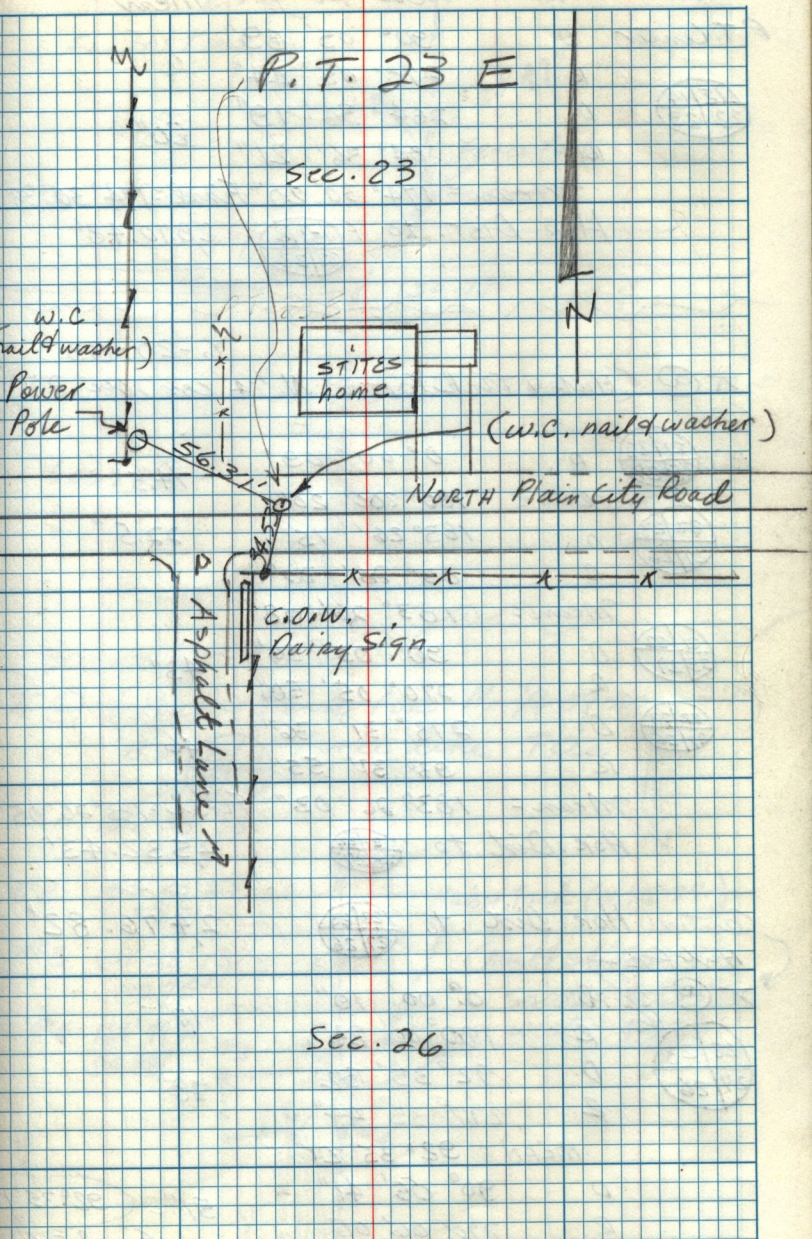 P.T. 23 E
Sec. 23
N
w.c
nail & washer)
Power
Pole
STITES
home
(w.c. nail & washer)
56.31'
34.5
NORTH Plain City Road
C.O.W.
Dairy Sign
Asphalt Lane
Sec. 26